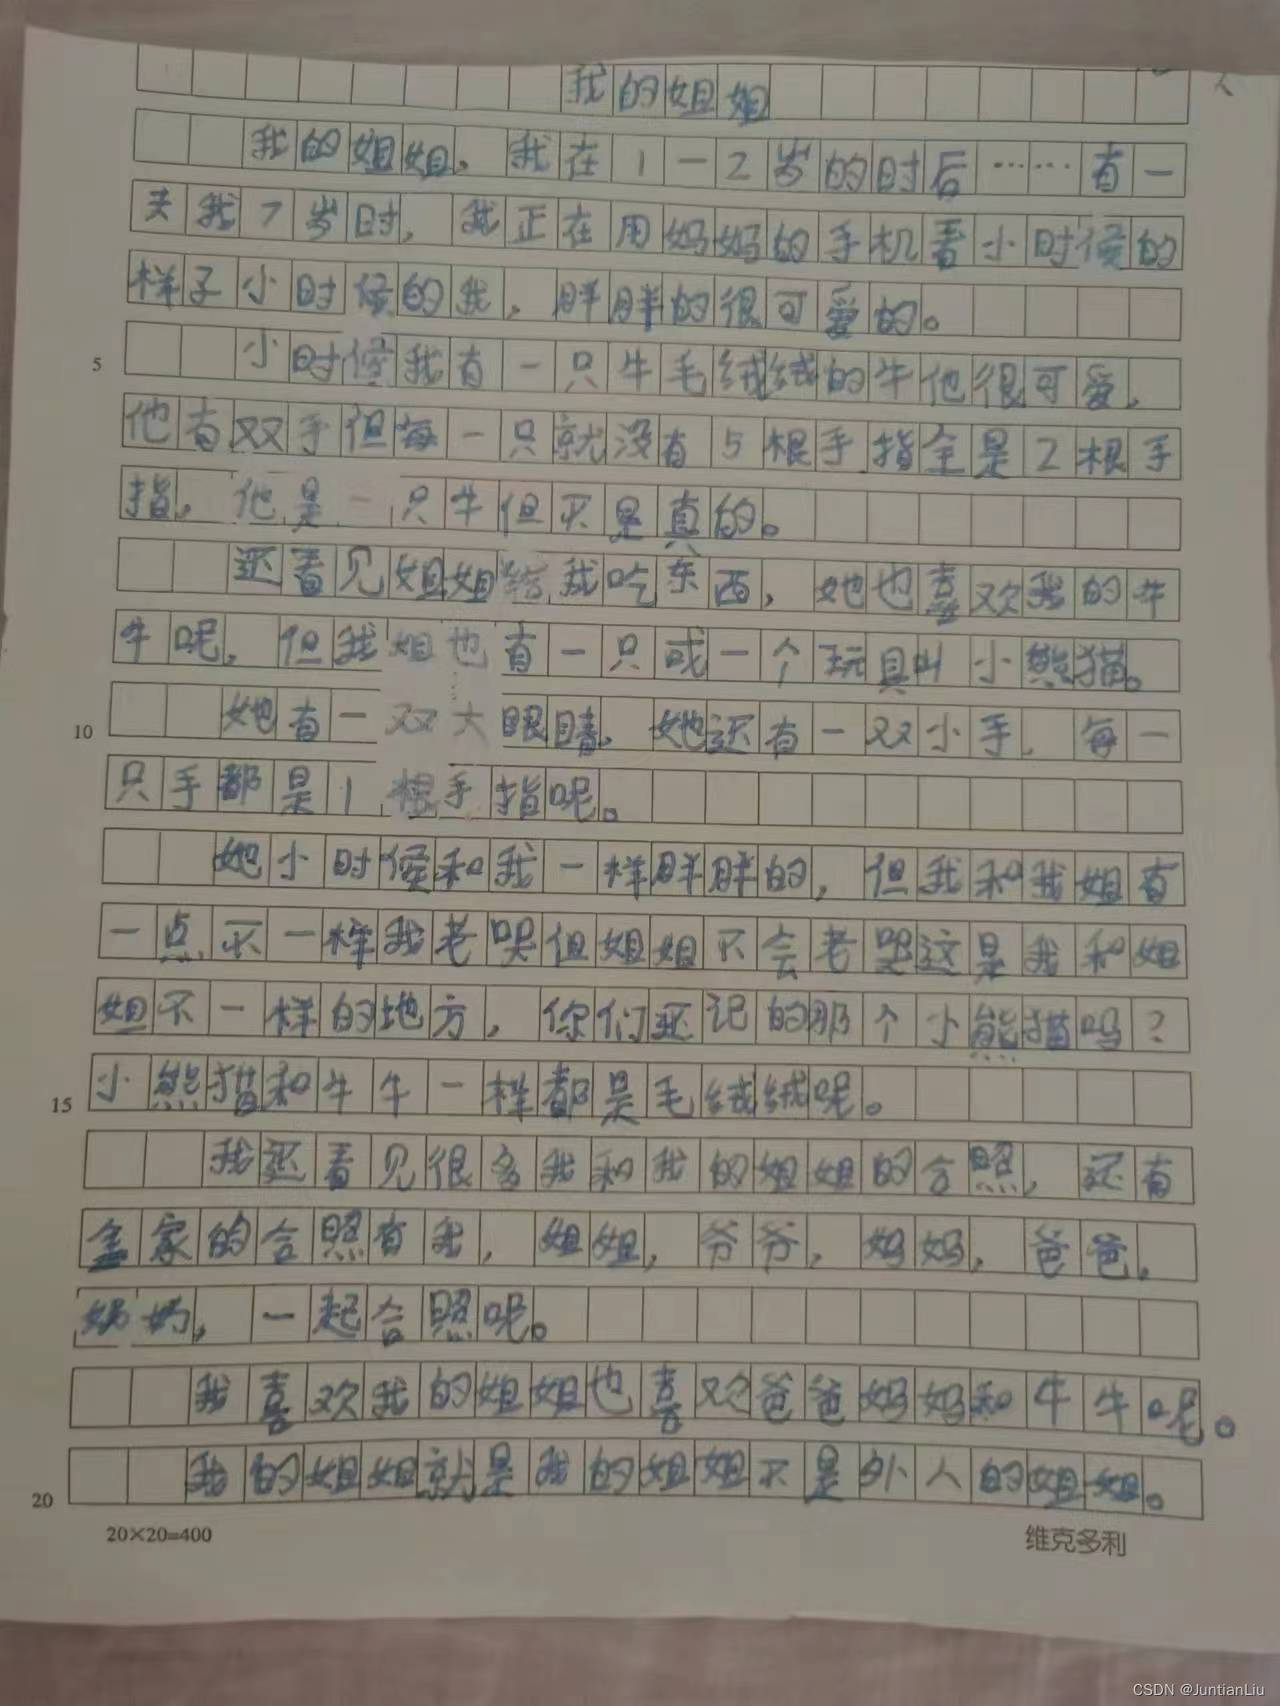 我的姐姐
我的姐姐，我在1一2岁的时后……有一
天我7岁时，我正在用妈妈的手机看小时侯的
样子小时侯的我，胖胖的很可爱的。
5 小时侯我有一只牛毛绒绒的牛他很可爱，
他有双手但每一只就没有5根手指全是2根手
指，他是一只牛但不是真的。
还看见姐姐给我吃东西，她也喜欢我的牛
牛呢，但我姐也有一只或一个玩具叫小熊猫。
10 她有一双大眼睛，她还有一双小手，每一
只手都是1根手指呢。
她小时侯和我一样胖胖的，但我和我姐有
一点不一样我老哭但姐姐不会老哭这是我和姐
姐不一样的地方，你们还记的那个小熊猫吗？
15 小熊猫和牛牛一样都是毛绒绒呢。
我还看见很多我和我的姐姐的合照，还有
全家的合照有我，姐姐，爷爷，妈妈，爸爸，
奶奶，一起合照呢。
我喜欢我的姐姐也喜欢爸爸妈妈和牛牛呢。
20 我的姐姐就是我的姐姐不是外人的姐姐。
20×20=400 维克多利
CSDN @JuntianLiu